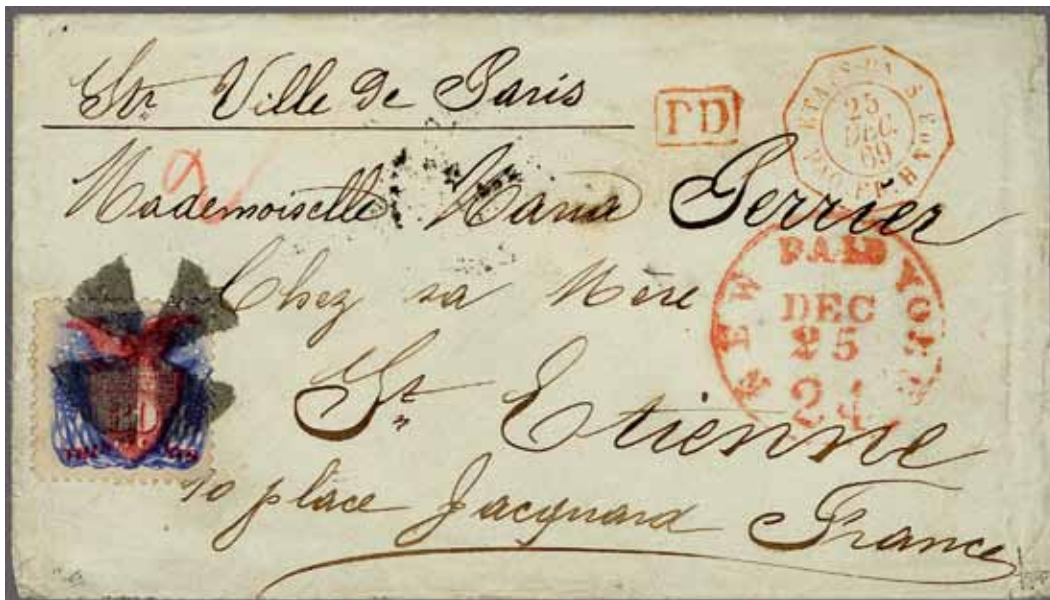 Str Ville de Paris
PD
ETATS-UNIS
25
DEC.
69
PAQ. FR. H
Mademoiselle Maria Perrier
Chez sa Mère
NEW PAID YORK
DEC
25
24
St Etienne
10 place Jacquard France